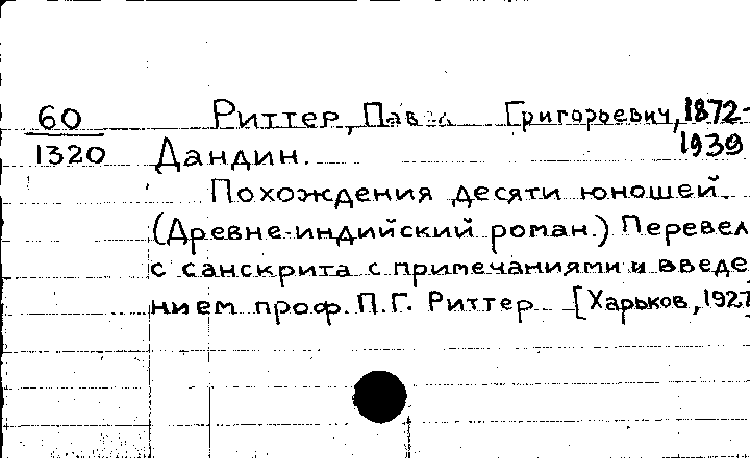 60 Риттер, Павел Григорьевич, 1872-
1320 Дандин. 1939
Похождения десяти юношей.
(Древне-индийский роман.) Перевел
с санскрита с примечаниями и введе
нием проф. П.Г. Риттер [Харьков, 1927